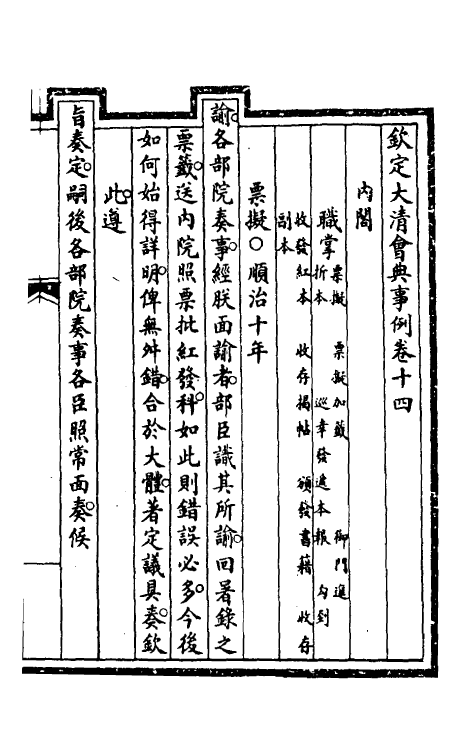 欽定大清會典事例卷十四
內閣
職掌 票擬 票擬加籤 御門進
折本 巡幸發遞本報 勾到
收發紅本 收存揭帖 頒發書籍 收存
副本
票擬○順治十年
諭各部院奏事經朕面諭者部臣識其所諭回署錄之
票籤送內院照票批紅發科如此則錯誤必多今後
如何始得詳明俾無舛錯合於大體著定議具奏欽
此遵
旨奏定嗣後各部院奏事各臣照常面奏候